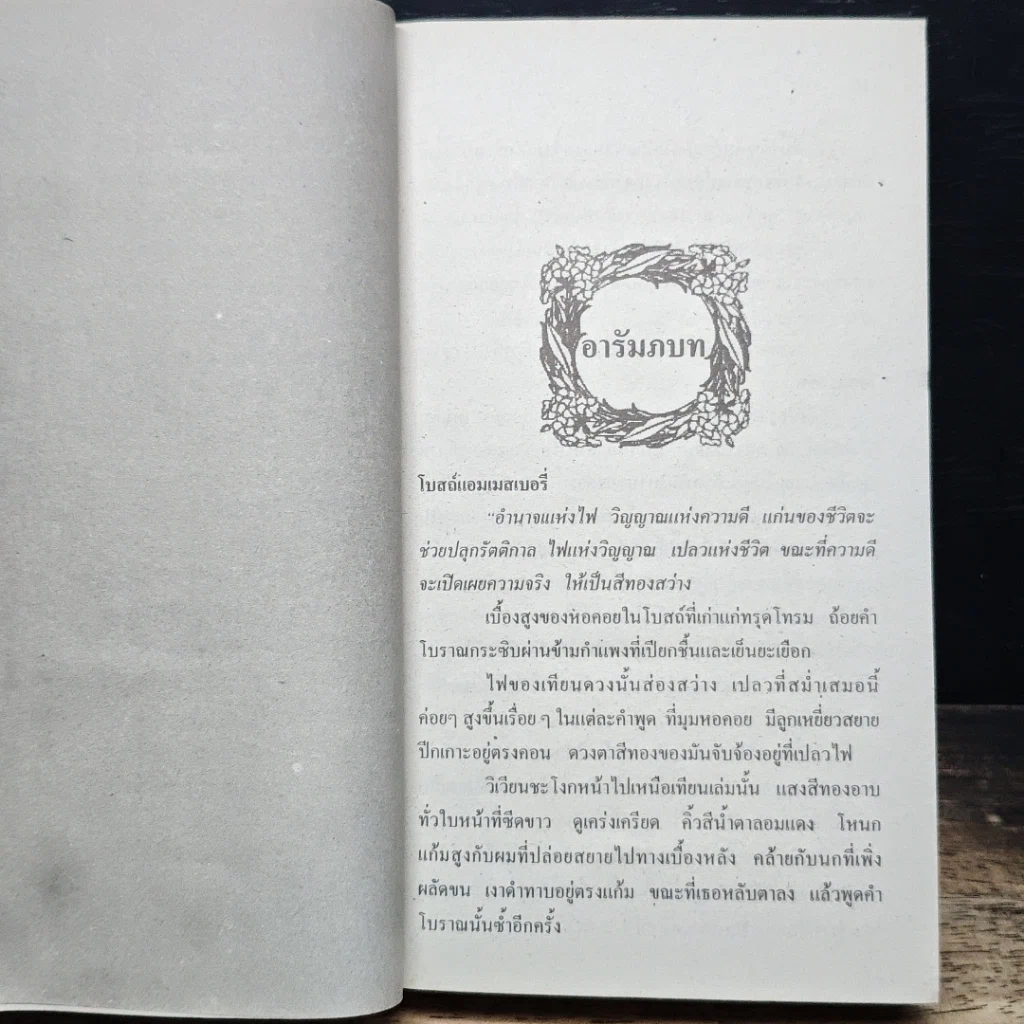 อารัมภบท
โบสถ์แอมเมสเบอรี่
"อำนาจแห่งไฟ วิญญาณแห่งความดี แก่นของชีวิตจะ
ช่วยปลุกรัตติกาล ไฟแห่งวิญญาณ เปลวแห่งชีวิต ขณะที่ความดี
จะเปิดเผยความจริง ให้เป็นสีทองสว่าง
เบื้องสูงของหอคอยในโบสถ์ที่เก่าแก่ทรุดโทรม ถ้อยคำ
โบราณกระซิบผ่านข้ามกำแพงที่เปียกชื้นและเย็นยะเยือก
ไฟของเทียนดวงนั้นส่องสว่าง เปลวที่สม่ำเสมอนี้
ค่อยๆ สูงขึ้นเรื่อย ๆ ในแต่ละคำพูด ที่มุมหอคอย มีลูกเหยี่ยวสยาย
ปีกเกาะอยู่ตรงคอน ดวงตาสีทองของมันจับจ้องอยู่ที่เปลวไฟ
วิเวียนชะโงกหน้าไปเหนือเทียนเล่มนั้น แสงสีทองอาบ
ทั่วใบหน้าที่ซีดขาว ดูเคร่งเครียด คิ้วสีน้ำตาลอมแดง โหนก
แก้มสูงกับผมที่ปล่อยสยายไปทางเบื้องหลัง คล้ายกับนกที่เพิ่ง
ผลัดขน เงาดำทาบอยู่ตรงแก้ม ขณะที่เธอหลับตาลง แล้วพูดคำ
โบราณนั้นซ้ำอีกครั้ง